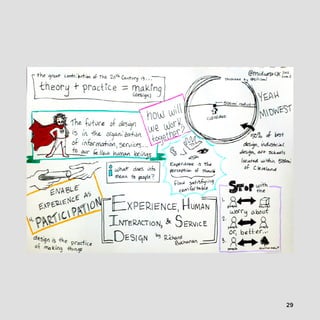 the great contribution of the 20th Century is...
theory + practice = making
(design)
The future of design
is in the organization
of information, services...
to our fellow human beings
how will
we work
together?
CLEVELAND
YEAH
MIDWEST
70% of best
design, industrial
design, arch schools
located within 500mi
of Cleveland
what does it
mean to people?
Experience is the
perception of
Find satisfying
comfortable
ENABLE
EXPERIENCE AS
"PARTICIPATION
design is the practice
of making things
EXPERIENCE, HUMAN
INTERACTION, & SERVICE
DESIGN by Richard
Buchanan
STOP with
the
1.
2.
worry about
or, better...
3.
29